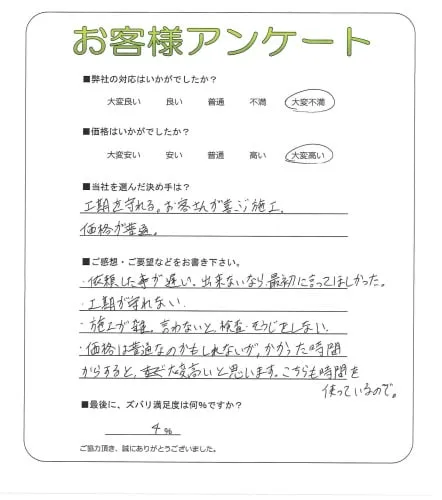 お客様アンケート
■弊社の対応はいかがでしたか?
大変良い 良い 普通 不満 大変不満
■価格はいかがでしたか?
大変安い 安い 普通 高い 大変高い
■当社を選んだ決め手は?
工期を守れる。お客さんが喜ぶ施工、
価格が普通。
■ご感想・ご要望などをお書き下さい。
・依頼した事が遅い、出来ないなら最初に言ってほしかった。
・工期が守れない
・施工が雑。言わないと、検査・そうじをしない
・価格は普通なのかもしれないが、かかった時間
からすると、大変高いと思います。こちらも時間を
使っているので。
■最後に、ズバリ満足度は何%ですか?
4 %
ご協力頂き、誠にありがとうございました。